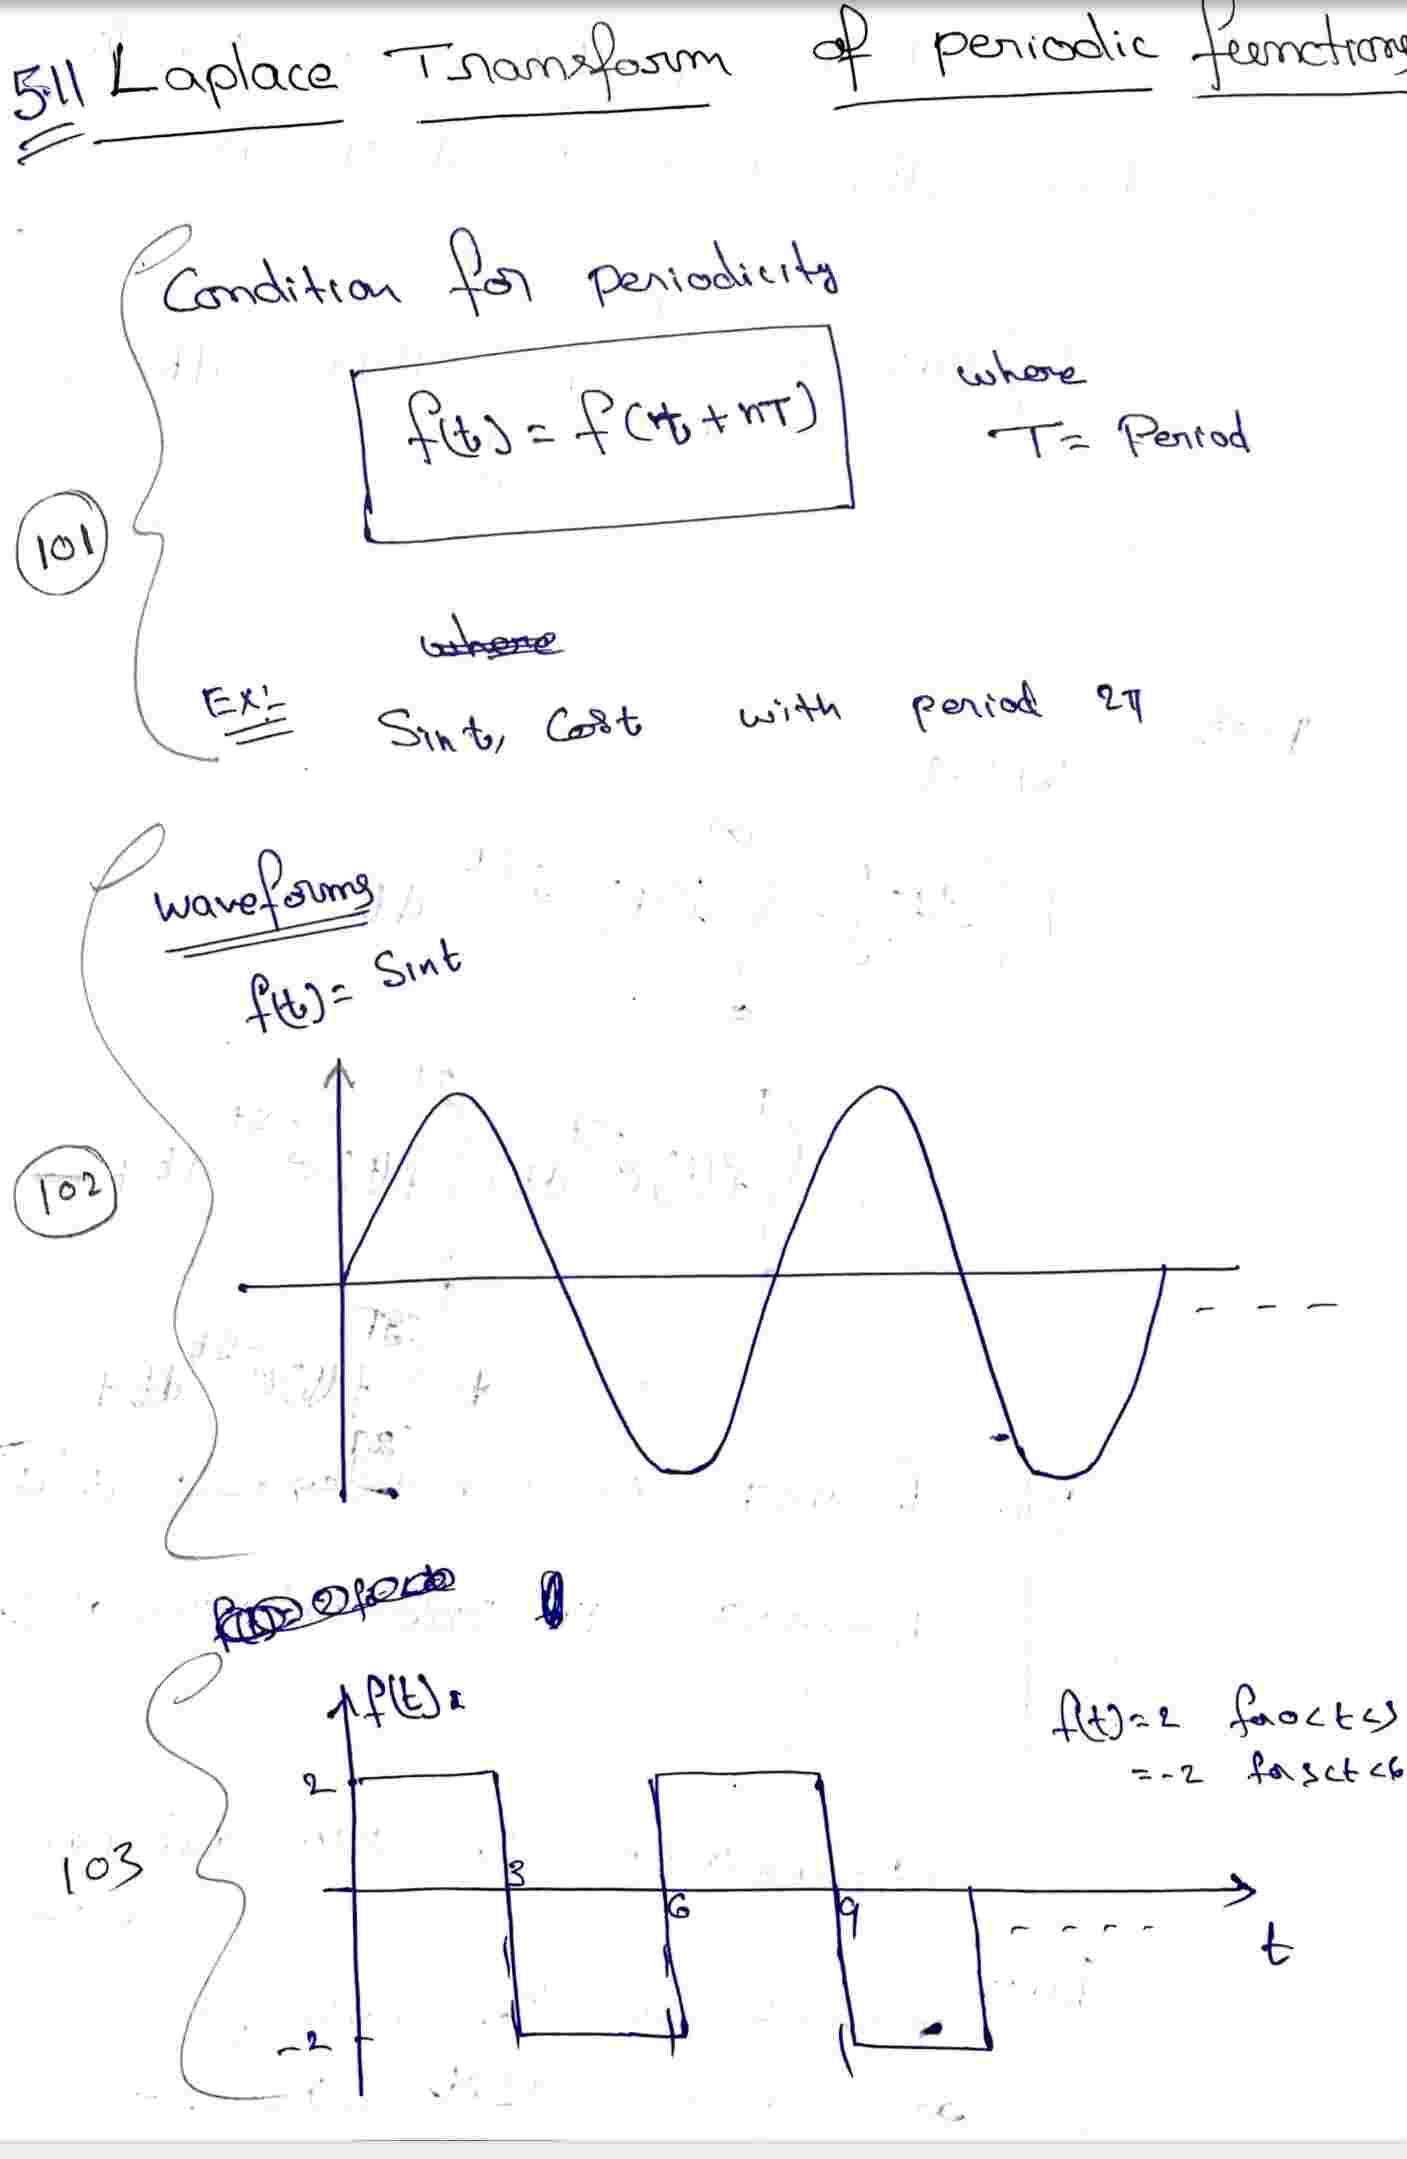 5.11 Laplace Transform of periodic functions
Condition for periodicity
f(t) = f(t + nT)
where
T = Period
101
where
Ex:- Sint, Cost with period 2π
waveforms
f(t) = Sint
102
f(t)
f(t) = 2 for 0<t<3
= -2 for 3<t<6
2
103
3
6
9
t
-2